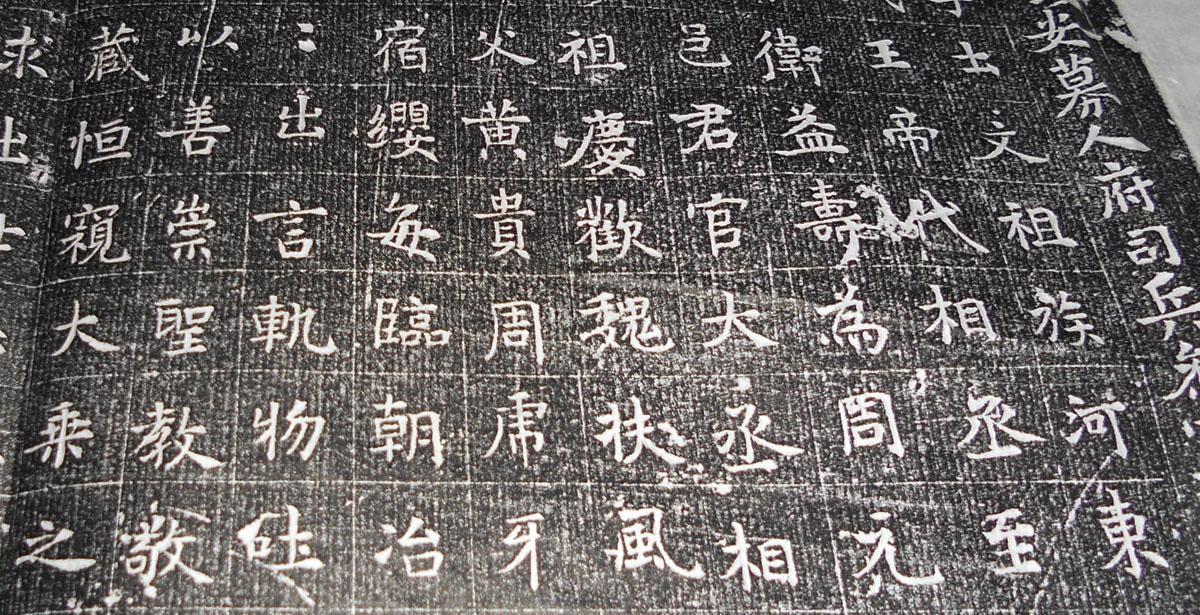 安募人府司兵
士文祖族河東
王帝代相丞至
衛益壽為周元
邑君官大丞相
祖慶歡魏扶風
父黄貴周虎牙
宿纓每臨朝冶
〻出言軌物硅
以善崇聖教敬
藏恒窺大乘之
求出